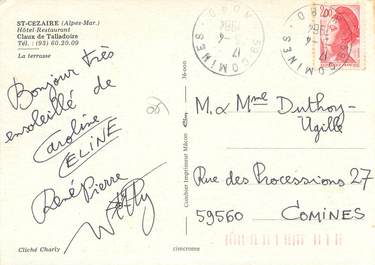 ST-CEZAIRE (Alpes-Mar.)
Hôtel-Restaurant
Claux de Talladoire
Tél. : (93) 60.20.09
La terrasse
Bonjour très
ensoleillé de
Caroline
CELINE
René Pierre
Willy
Cliché Charly
76-000
Combier Imprimeur Mâcon
cimcrome
59 COMINES
NORD
17 -4
1984
59 COMINES
NORD
17 -4
1984
M. & Mme Duthoy-
Ugille
Rue des Processions 27
59560 COMINES